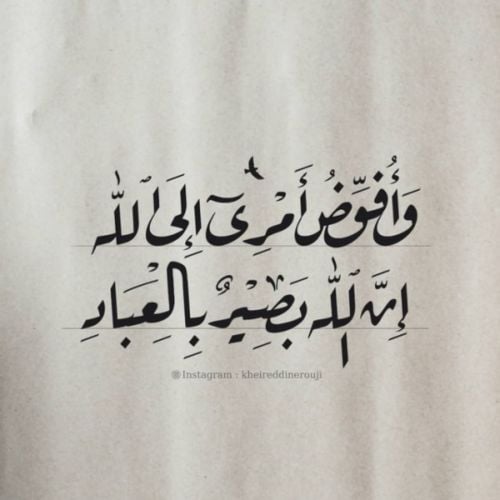 وَأُفَوِّضُ أَمْرِىٓ إِلَى ٱللَّه
إِنَّ ٱللَّه بَصِيْرٌ بِالْعِبَادِ
Instagram : kheireddinerouji